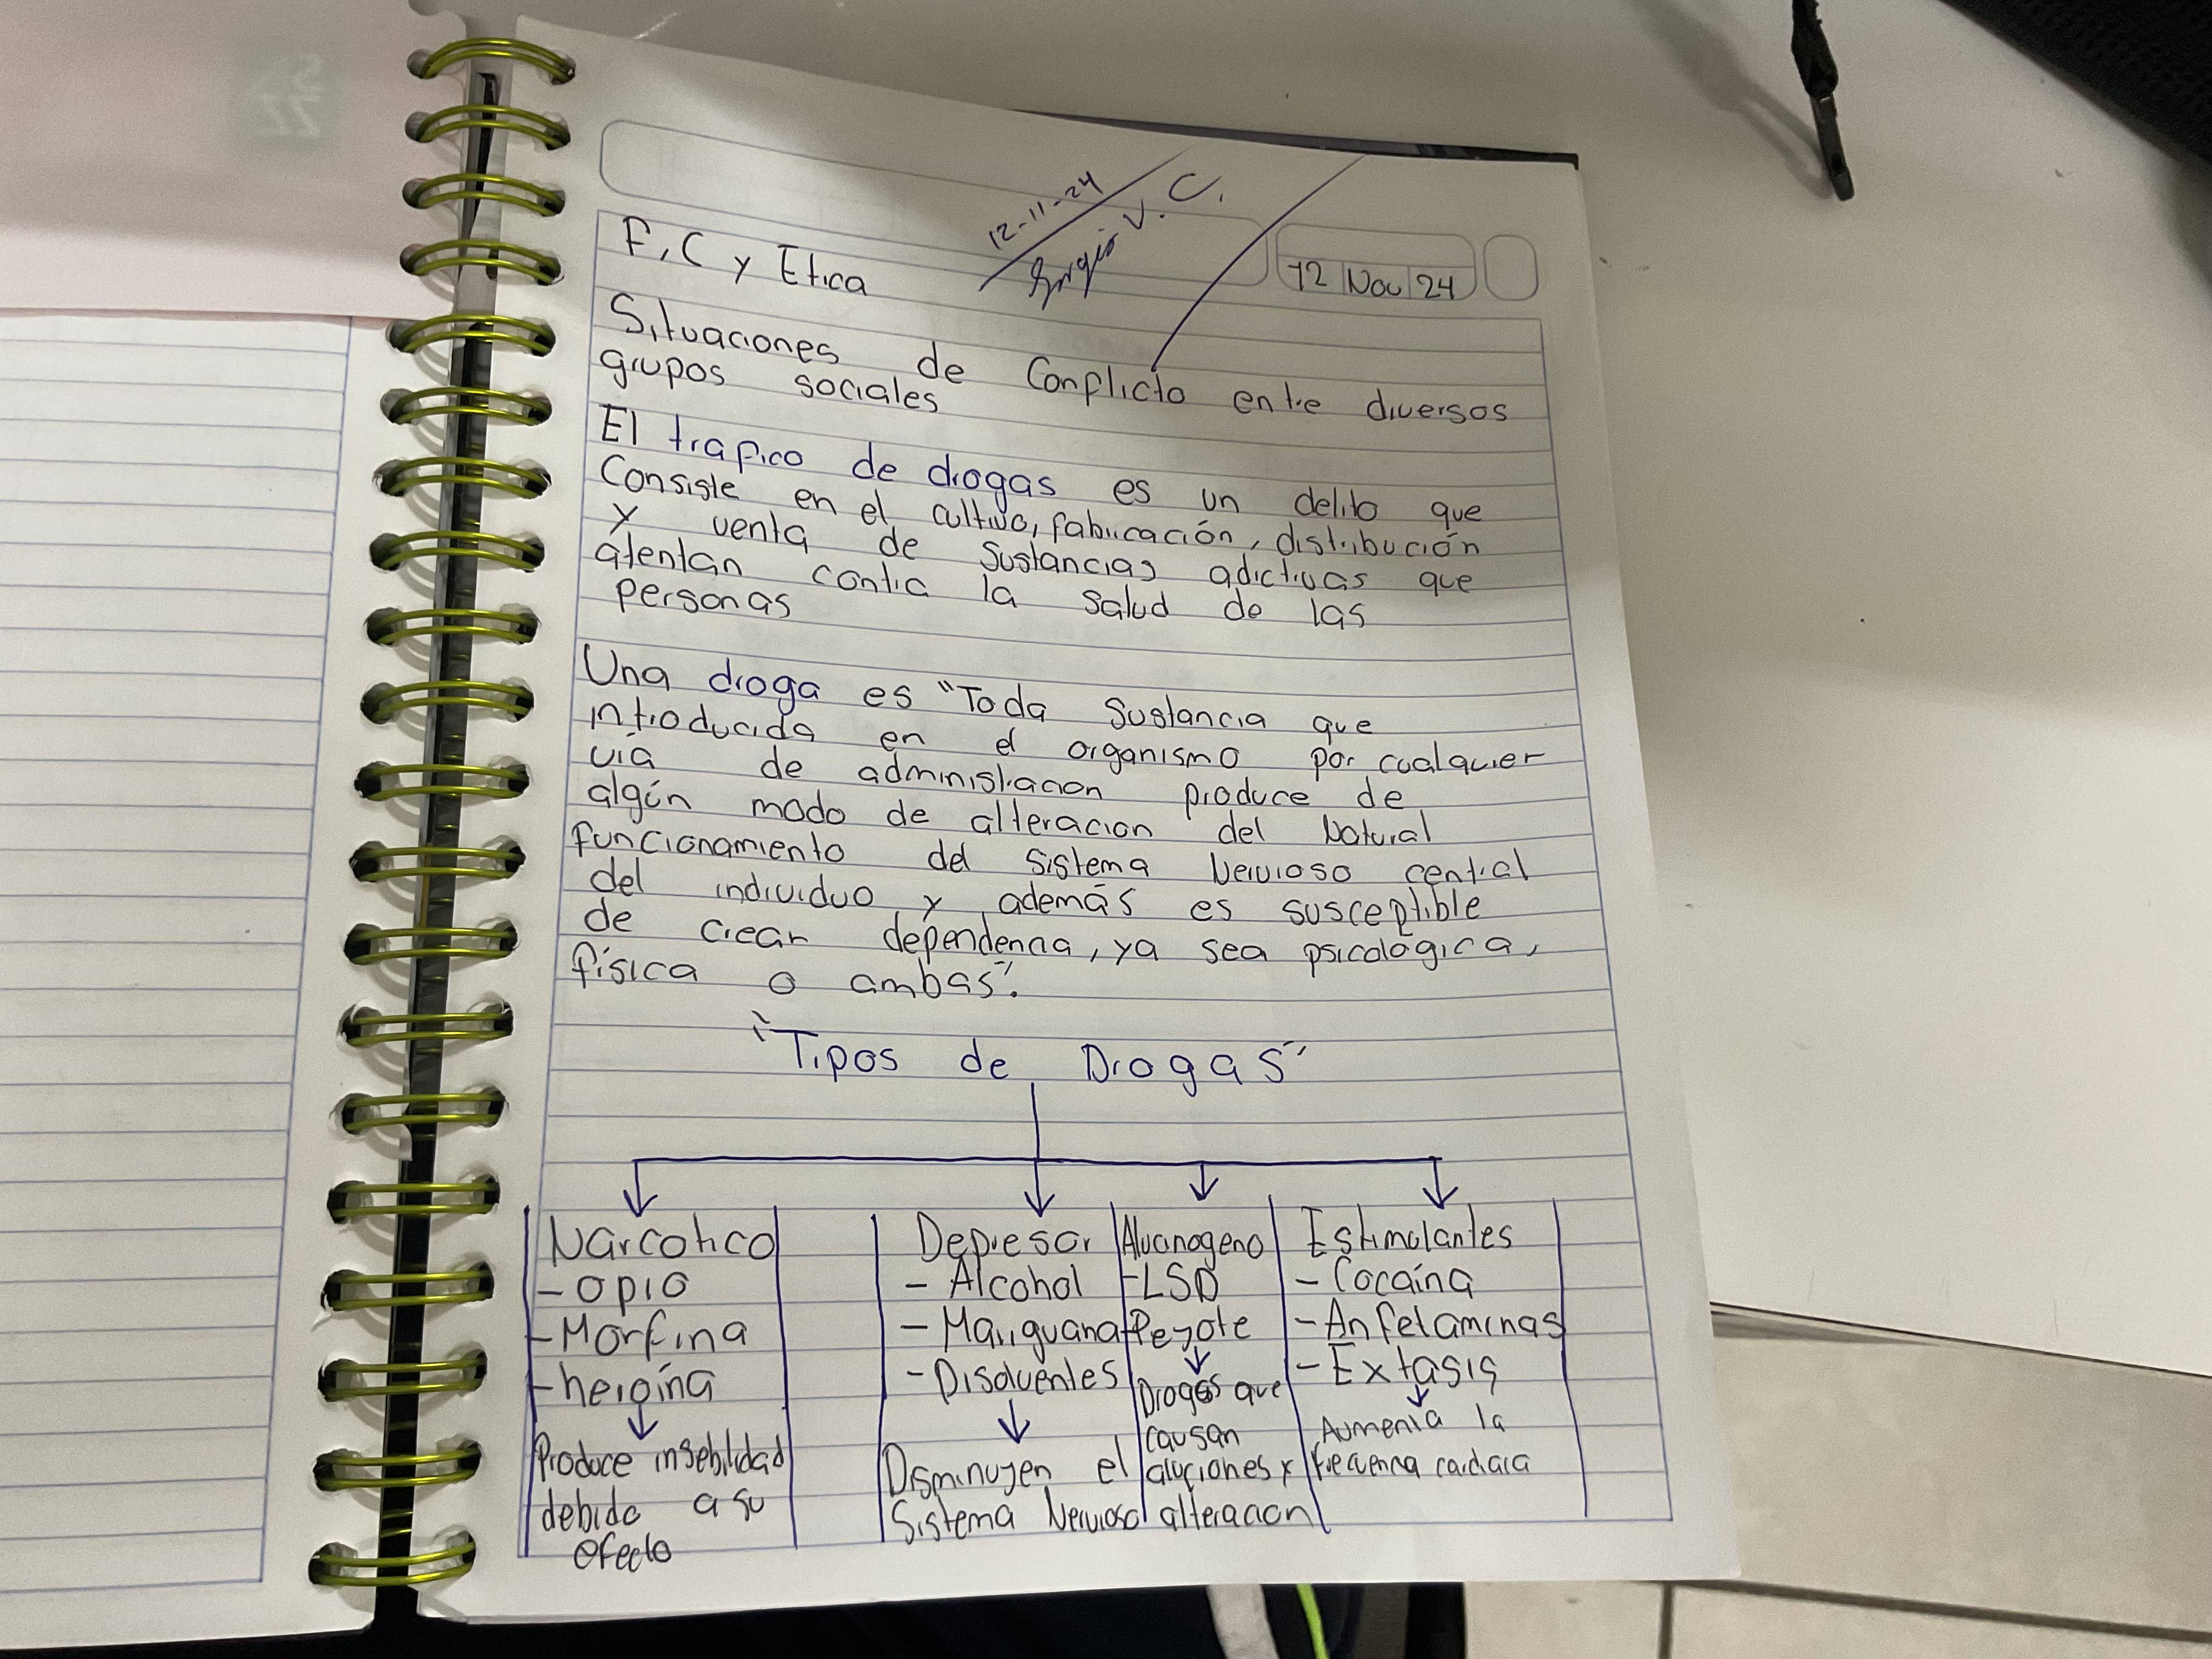 12-11-24
Sergio V. C.
F, C y Etica
12 Nov 24
Situaciones de Conflicto entre diversos
grupos sociales
El trafico de drogas es un delito que
Consiste en el cultivo, fabricación, distribución
y venta de sustancias adictivas que
atentan contra la salud de las
personas
Una droga es "Toda sustancia que
introducida en el organismo por cualquier
vía de administracion produce de
algún modo de alteracion del Natural
funcionamiento del sistema Nervioso central
del individuo y además es susceptible
de crear dependencia, ya sea psicológica,
física o ambas".
"Tipos de Drogas"
Narcotico
- Opio
- Morfina
- heroína
Produce insebilidad
debido a su
efecto
Depresor
- Alcohol
- Mariguana
- Disolventes
Disminuyen el
Sistema Nervioso
Alucinogeno
- LSD
- Peyote
Drogas que
causan
aluciones y
alteracion
Estimulantes
- Cocaína
- Anfetaminas
- Extasis
Aumenta la
frecuencia cardiaca